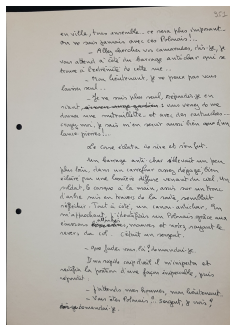 352
en ville, tous ensemble.. ce sera plus imposant..
On ne sait jamais avec ces Polonais!..
- Allez chercher vos camarades, dis-je, je
vous attends à côté du barrage antichar qui se
trouve à l'extrémité de cette rue..
- Mon lieutenant, je ne peux pas vous
laisser seul...
- Je ne suis plus seul, répondis-je en
riant, : vous venez de me
donner une mitraillette et avec des cartouches...
, je vais m'en servir aussi bien que d'un
lance pierres!..
Le Corse éclata de rire et s'en fut.
Un barrage anti char s'élevait un peu
plus loin, dans un carrefour assez dégagé, bien
éclairé par une lumière diffuse venant du ciel. Un
soldat, le casque à la main, assis sur un tronc
d'arbre mis en travers de la route, semblait
réfléchir. Tout à côté, un canon antichar. En
m'approchant, j'identifiai un Polonais grâce aux
écussons mauves et noirs, rouges, le
revers du col. C'était un sergent.
- Que fais-tu là? demandai-je.
D'un rapide coup d'oeil il m'inspecta et
rectifia la position d'une façon impeccable, puis
répondit:
- J'attends mes hommes, mon lieutenant.
- Vous êtes Polonais?. Sergent, je crois?
demandai-je.